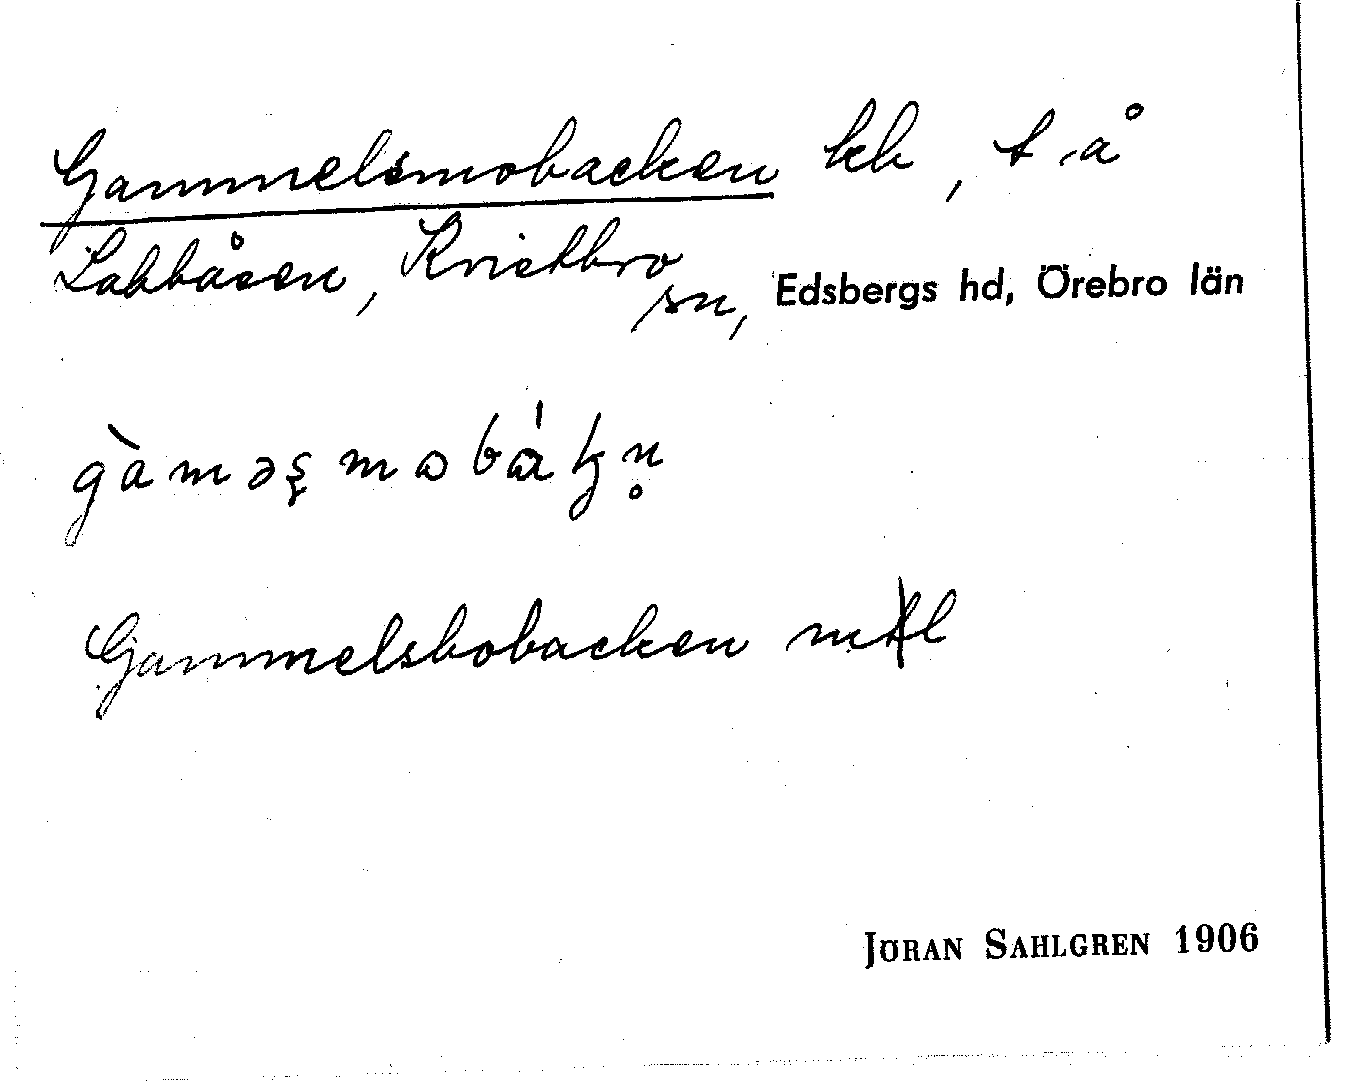 Gammelsmobacken kb, t.å
Labbåsen, Kvistbro
sn, Edsbergs hd, Örebro län
gàməʂmobákn̥
Gammelsbobacken
JÖRAN SAHLGREN 1906